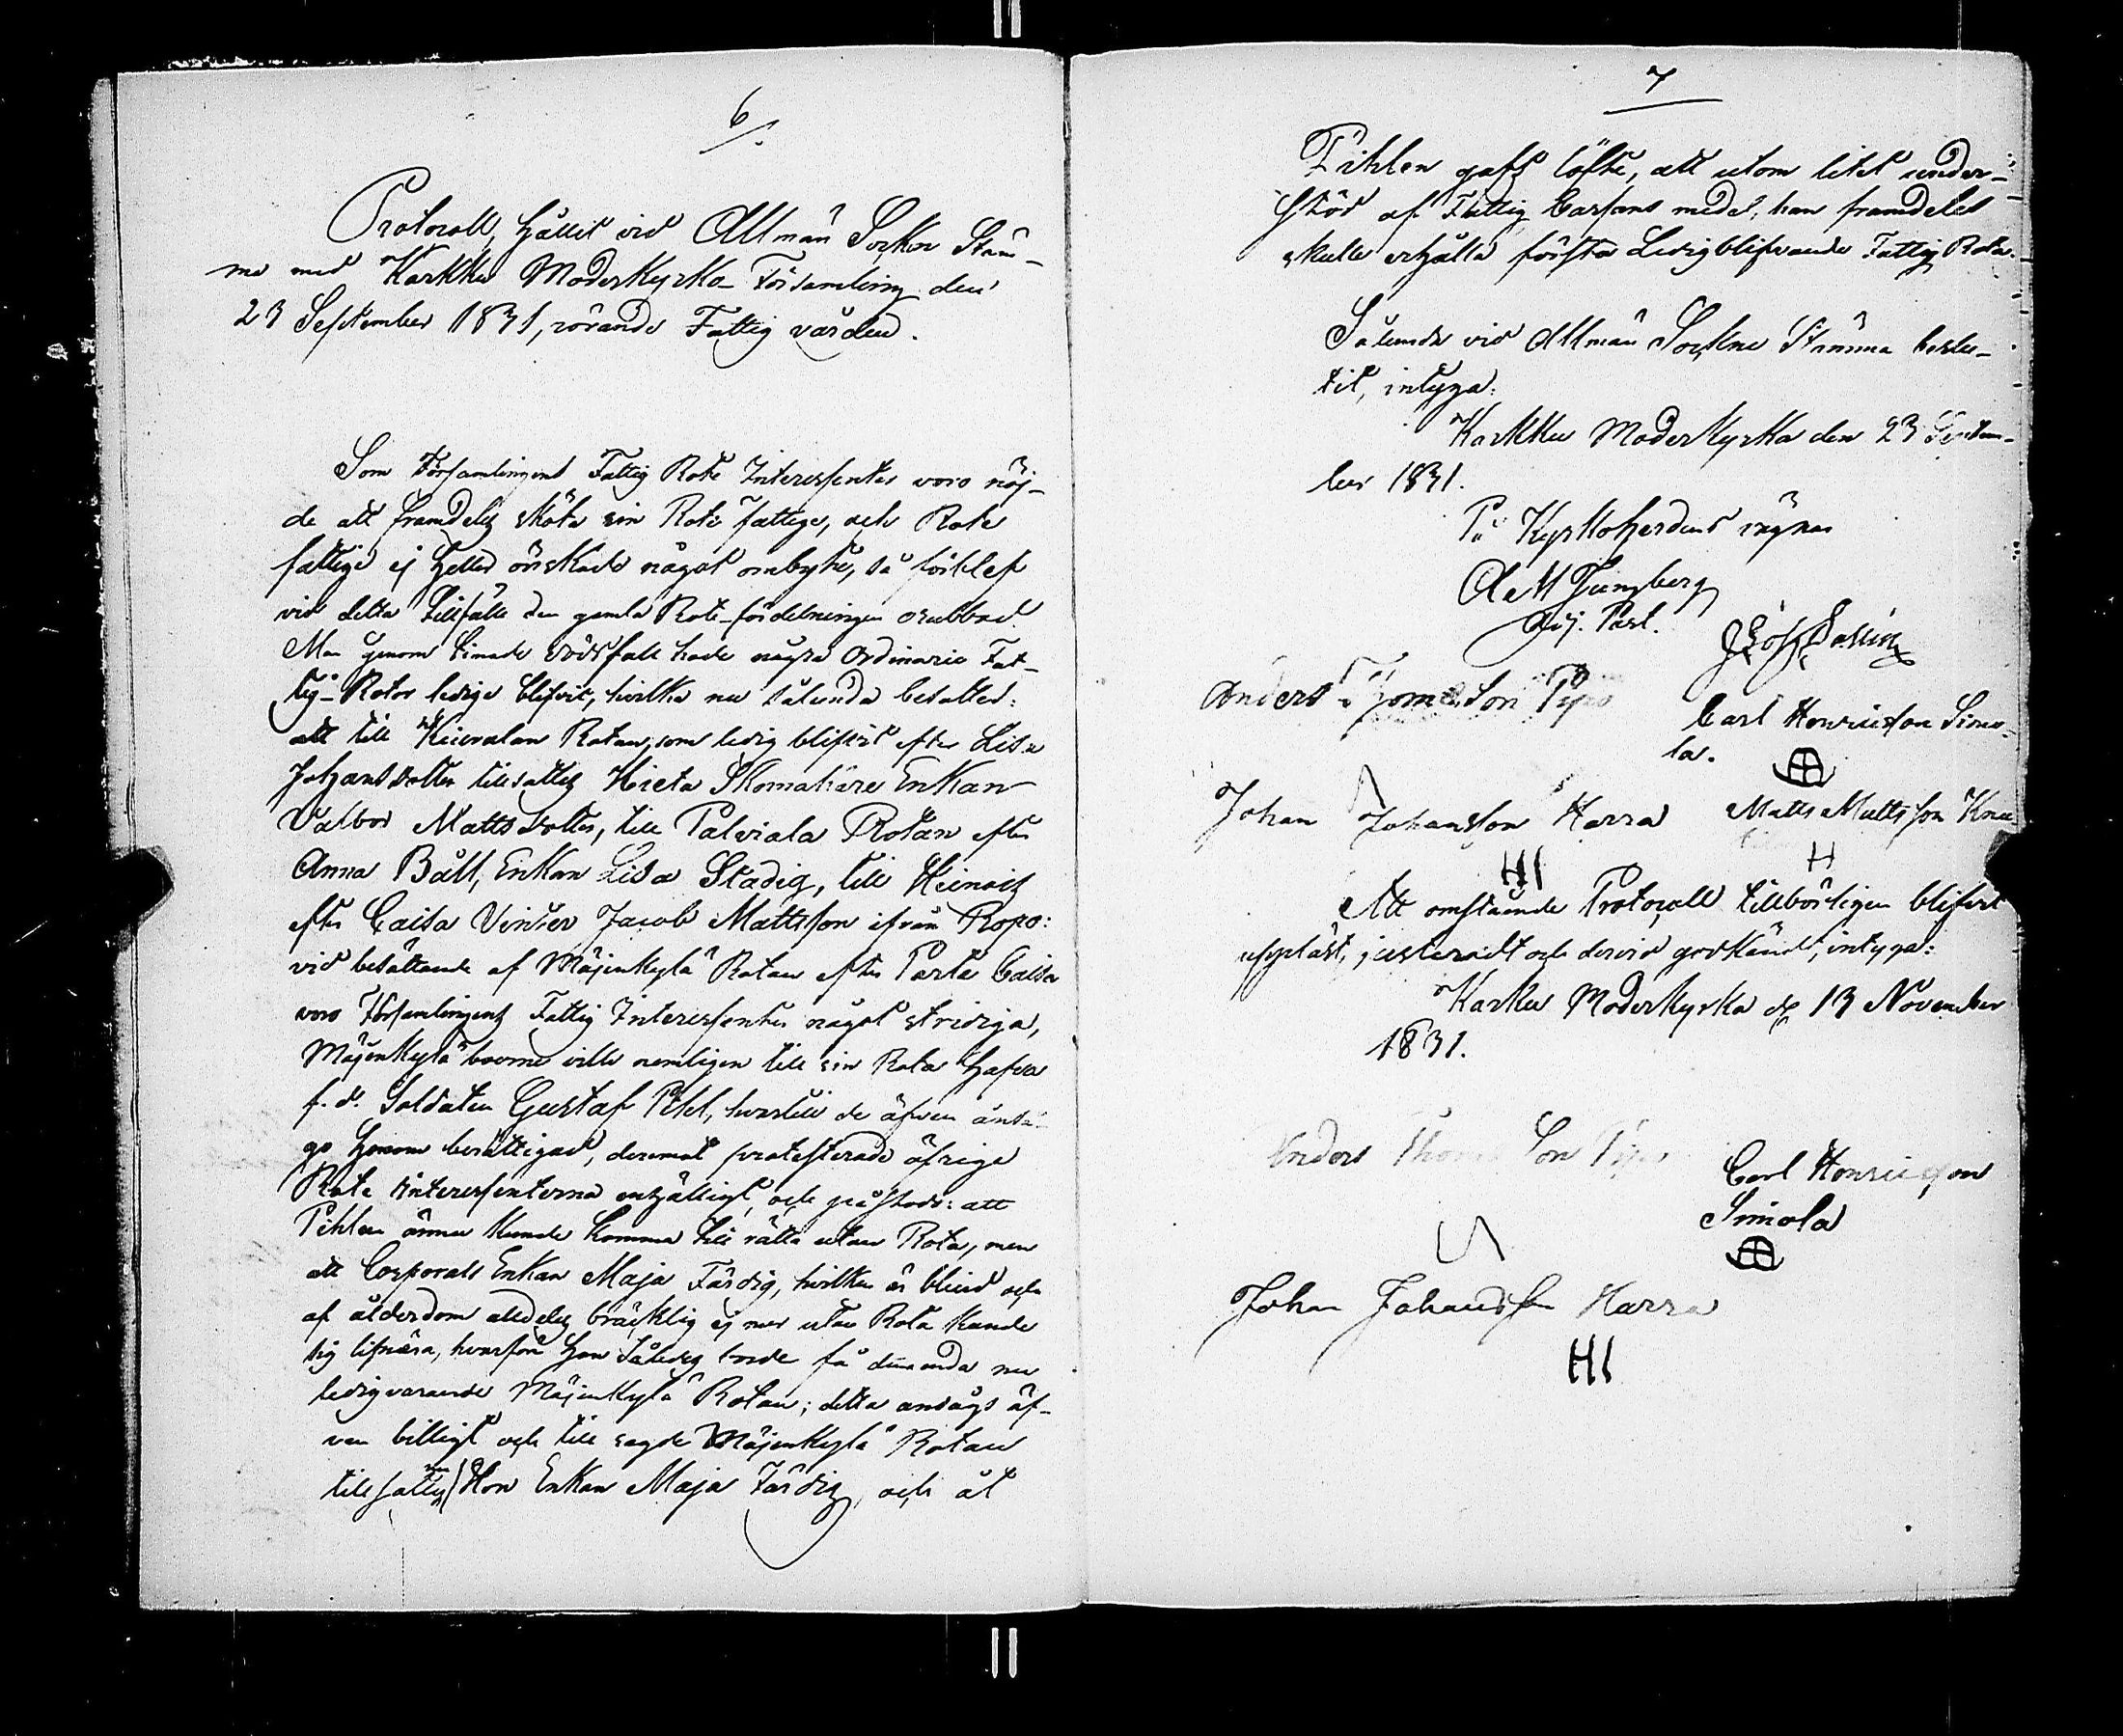 6
Protocoll, hållit vid Allmän Sockne Stäm-
ma med Karkku Moderkyrko Församling den
23 September 1831, rörande Fattig vården.
Som Församlingens Fattig Rote Interessenter voro nöj-
de att framdeles sköta sin Rote fattige, och Rote
fattige ej heller önskade något ombyte, så förblef
vid detta tillfälle den gamla Rote-fördelningen orubbad.
Men genom timade dödsfall hade några Ordinarie Fat-
tig-Rotor ledige blifvit, hvilka nu sålunda besattes:
att till Rotan, som ledig blifvit efter Lisa
Johansdotter tillsattes Hieta Skomakare Enkan
Valbor Mattsdotter, till Palviala Rotan efter
Anna Båll, Enkan Lisa Stadig, till Heinois
efter Caisa Vinter Jacob Mattsson ifrån Ropo:
vid besättande af Mäjenkylä Rotan efter Parta Caisa
voro Församlingens Fattig Interessenter något stridiga,
Mäjenkylä boerne ville nemligen till sin Rota hafva
f. d. Soldaten Gustaf Pihl, hvartill de äfven anså-
go honom berättigad, deremot protesterade öfrige
Rote Interessenterna enhälligt, och påstodo: att
Pihlen ännu kunde komma till rätta utan Rota, men
att Corporals Enkan Maja Färdig, hvilken är blind och
af ålderdom aldeles bräcklig ej mer utan Rota kunde
sig lifnära, hvarföre hon således borde få denna nu
ledigvarande Mäjenkylä Rotan; detta ansågs äf-
ven billigt och till sagde Mäjenkylä Rotan
tillsattes Hon Enkan Maja Färdig, och åt
7
Pihlen gafs löfte, att utom litet under-
stöd af Fattig Cassans medel, han framdeles
skulle erhålla första Ledigblifvande Fattig Rota.
Sålunda vid Allmän Sockne Stämma beslu-
tit, intyga:
Karkku Moderkyrka den 23 Septem-
ber 1831.
På Kyrkoherdens vägnar
Ljungberg
Adj. Past.
Anders Thomasson Pyro
Carl Henricsson Simo-
la.
Johan Johansson Harra Matts Mattsson
HI H
Att omstående Protocoll tillbörligen blifvit
uppläst, justeradt och dervid godkändt, intyga:
Karku Moderkyrka d. 13 November
1831.
Anders Thomasson
Carl Henricsson
Simola
Johan Johansson Harra
HI